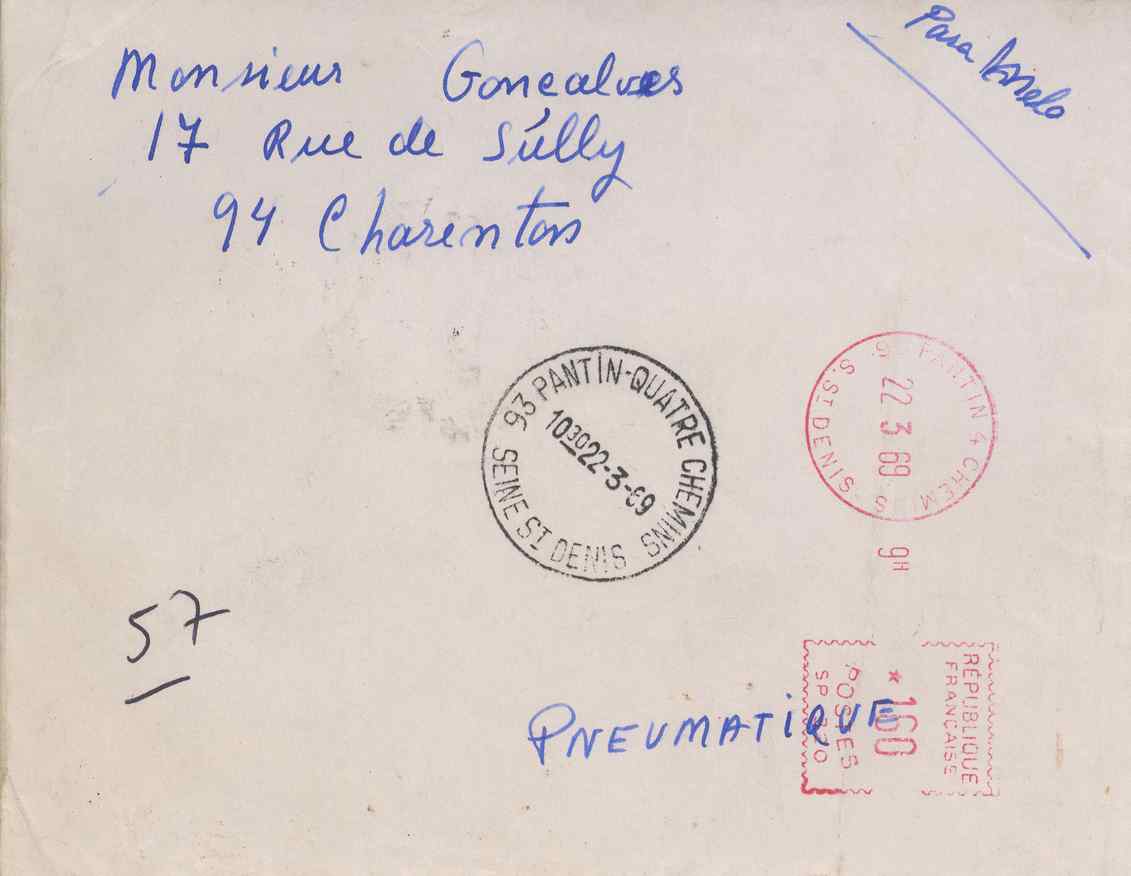 Monsieur Goncalves
17 Rue de Sully
94 Charenton
Para
93 PANTIN-QUATRE CHEMINS
10 30 22-3-69
SEINE ST DENIS
PANTIN 4 CHEMINS
22 3 69
S. ST DENIS
9H
57
PNEUMATIQUE
RÉPUBLIQUE
FRANÇAISE
*160
POSTES